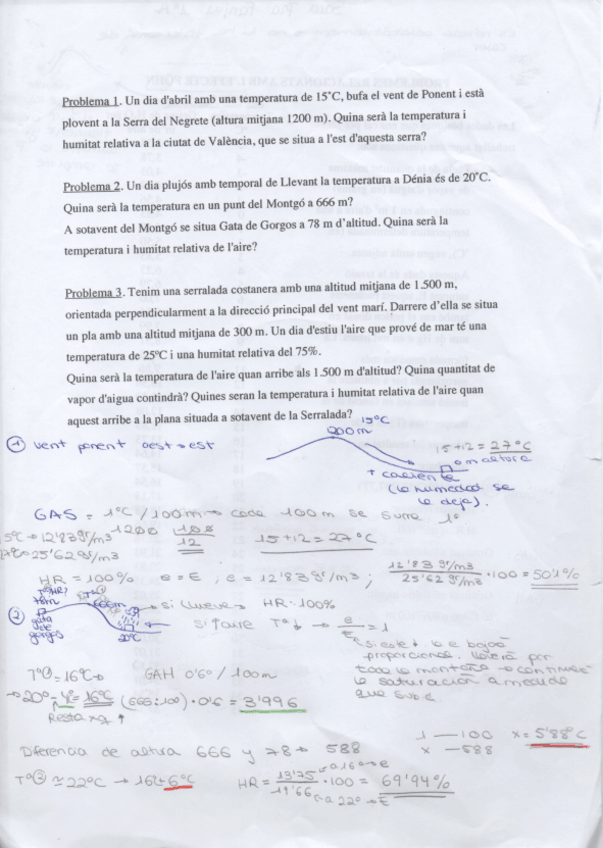 Problema 1. Un dia d'abril amb una temperatura de 15ºC, bufa el vent de Ponent i està
plovent a la Serra del Negrete (altura mitjana 1200 m). Quina serà la temperatura i
humitat relativa a la ciutat de València, que se situa a l'est d'aquesta serra?
Problema 2. Un dia plujós amb temporal de Llevant la temperatura a Dénia és de 20ºC.
Quina serà la temperatura en un punt del Montgó a 666 m?
A sotavent del Montgó se situa Gata de Gorgos a 78 m d'altitud. Quina serà la
temperatura i humitat relativa de l'aire?
Problema 3. Tenim una serralada costanera amb una altitud mitjana de 1.500 m,
orientada perpendicularment a la direcció principal del vent marí. Darrere d'ella se situa
un pla amb una altitud mitjana de 300 m. Un dia d'estiu l'aire que prové de mar té una
temperatura de 25ºC i una humitat relativa del 75%.
Quina serà la temperatura de l'aire quan arribe als 1.500 m d'altitud? Quina quantitat de
vapor d'aigua contindrà? Quines seran la temperatura i humitat relativa de l'aire quan
aquest arribe a la plana situada a sotavent de la Serralada?
15ºC
① vent ponent oest → est
15+12 = 27ºC
0 m altura
+ caliente
(la humedad se
la deja).
GAS = 1ºC / 100m → cada 100m se sume 1º
12'83 gr/m3
1200 100
12
15+12 = 27ºC
25'62 gr/m3
HR = 100% e = E, e = 12'83 gr/m3;
12'83 gr/m3
25'62 gr/m3 · 100 = 50'1%
②
666m
→ si llueve → HR · 100%
gata
de
gorgos
20ºC
e/E = 1
7ºC = 16ºC → GAH 0'6º / 100m
→ 20º - 4º = 16ºC (666:100) · 0'6 = 3'996
Resta
la saturación a medida
que sube.
Diferencia de altura 666 y 78 → 588
1 — 100 x = 5'88ºC
x — 588
≃ 22ºC → 16 + 6ºC
HR = 13'75 → a 16º → e
19'66 → a 22º → E
· 100 = 69'94%